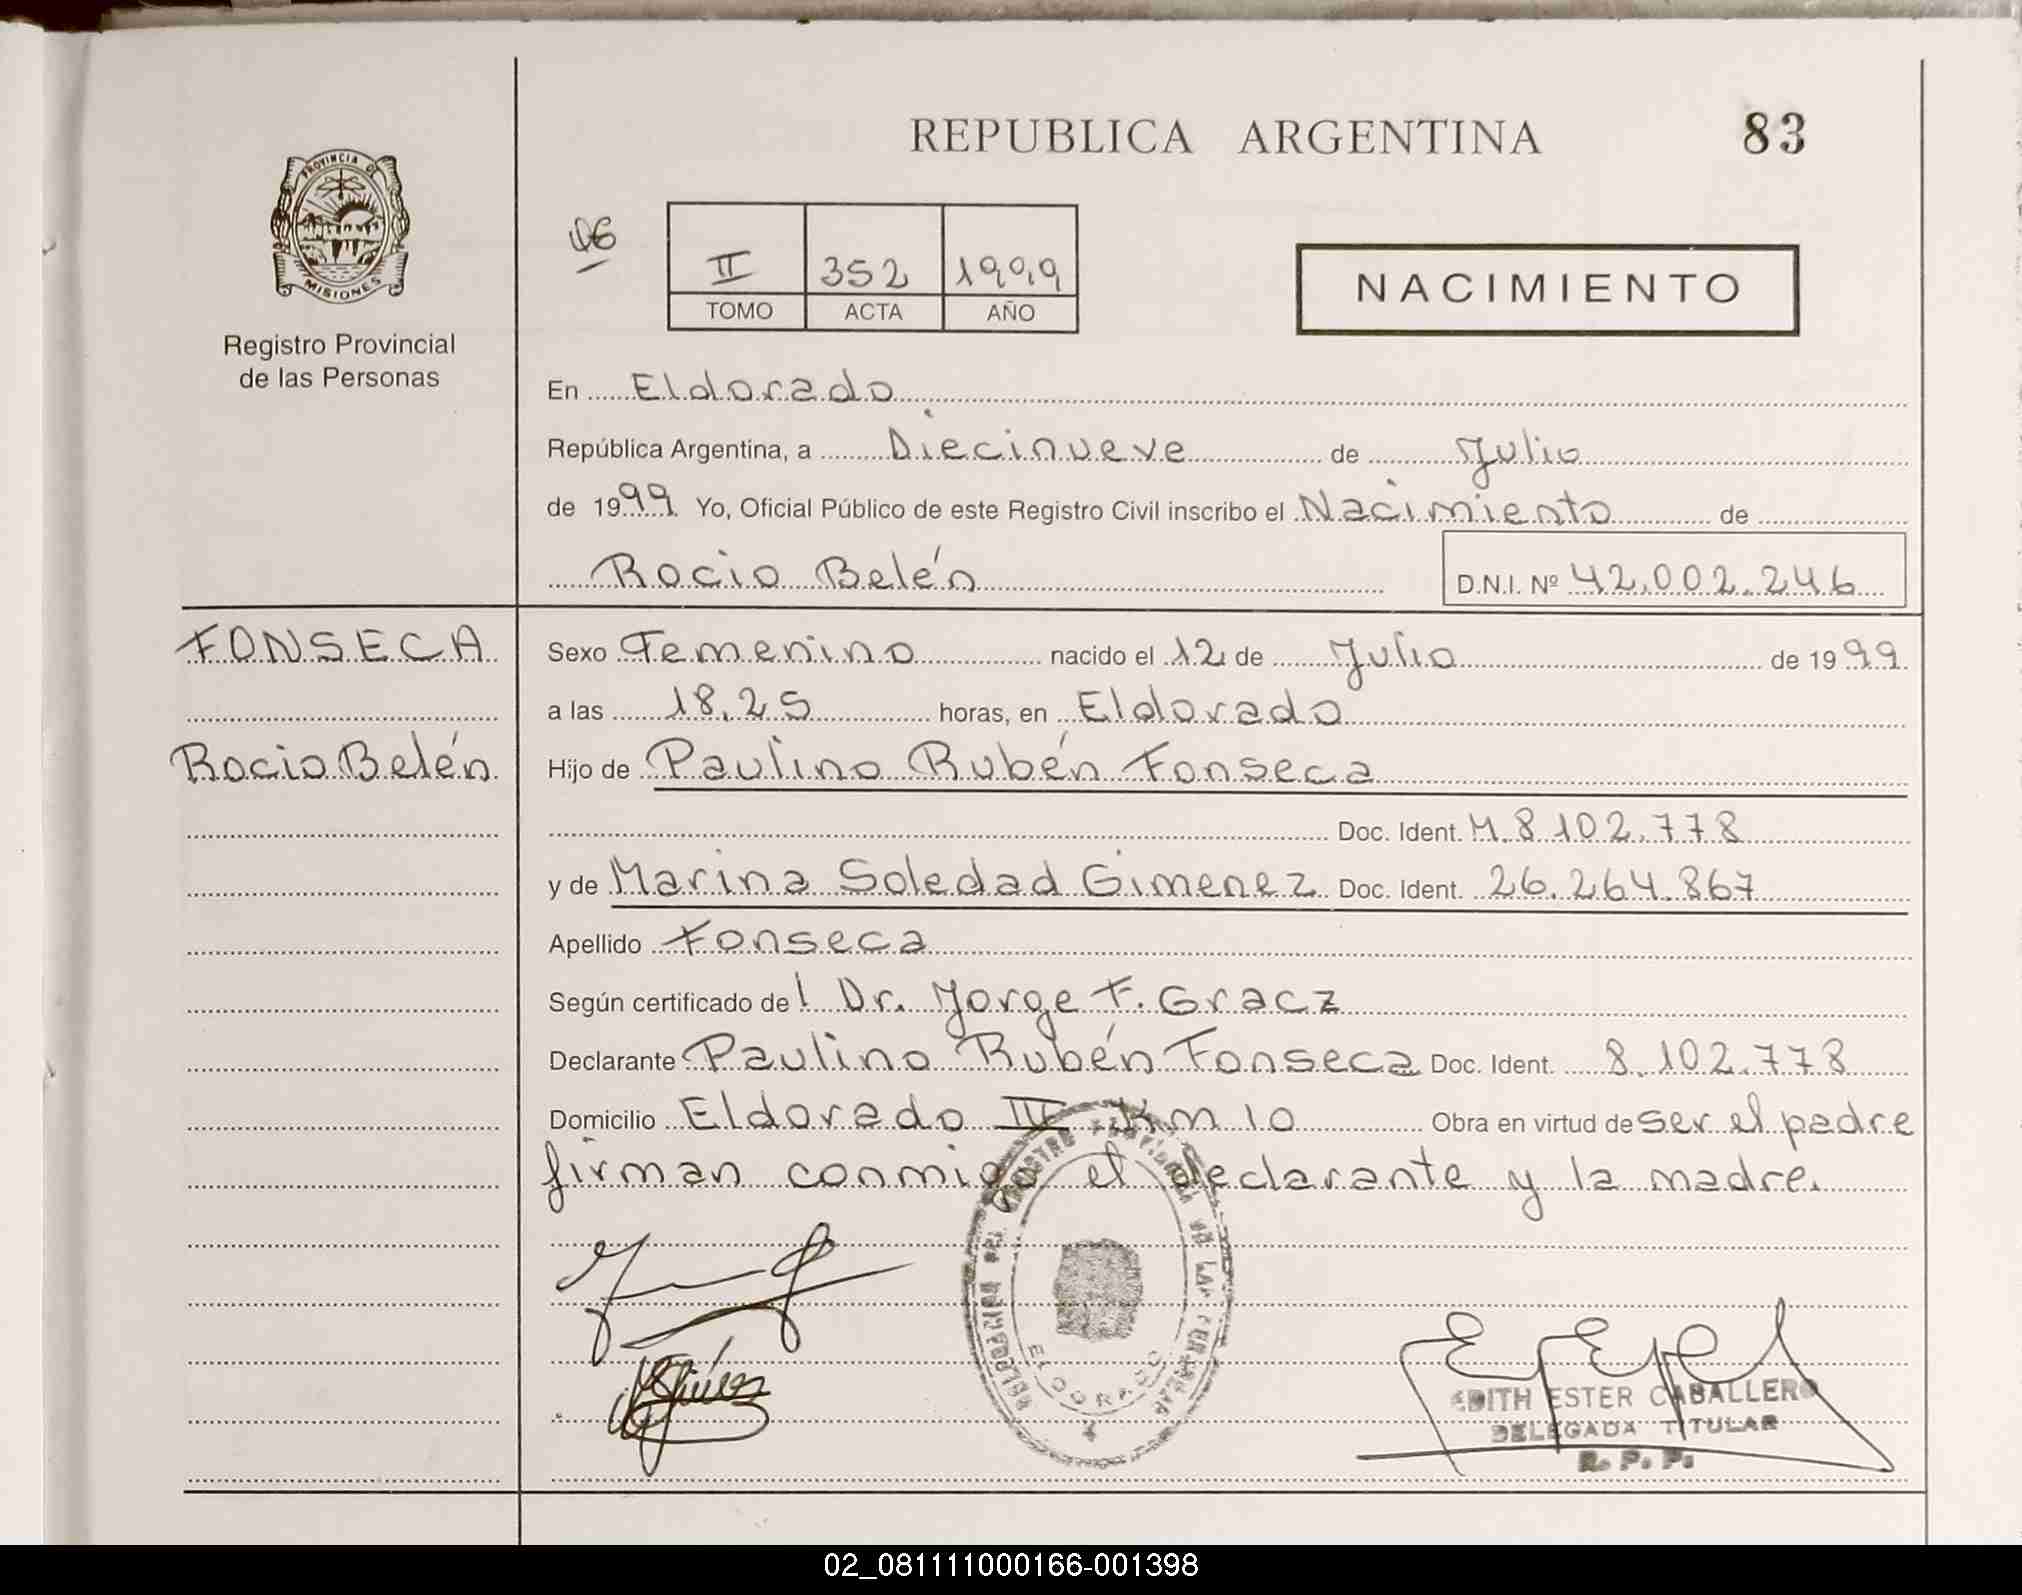 REPUBLICA ARGENTINA 83
PROVINCIA DE
MISIONES
Registro Provincial
de las Personas
06
II 352 1999
TOMO ACTA AÑO
NACIMIENTO
En Eldorado
República Argentina, a Diecinueve de Julio
de 1999 Yo, Oficial Público de este Registro Civil inscribo el Nacimiento de
Rocio Belén D.N.I. Nº 42.002.246
FONSECA
Rocio Belén
Sexo Femenino nacido el 12 de Julio de 1999
a las 18.25 horas, en Eldorado
Hijo de Paulino Rubén Fonseca
Doc. Ident. M.8.102.778
y de Marina Soledad Gimenez Doc. Ident. 26.264.867
Apellido Fonseca
Según certificado del Dr. Jorge F. Gracz
Declarante Paulino Rubén Fonseca Doc. Ident. 8.102.778
Domicilio Eldorado Km 10 Obra en virtud de ser el padre
firman conmigo el declarante y la madre.
ELDORADO
EDITH ESTER CABALLERO
DELEGADA TITULAR
R. P. P.
02_081111000166-001398